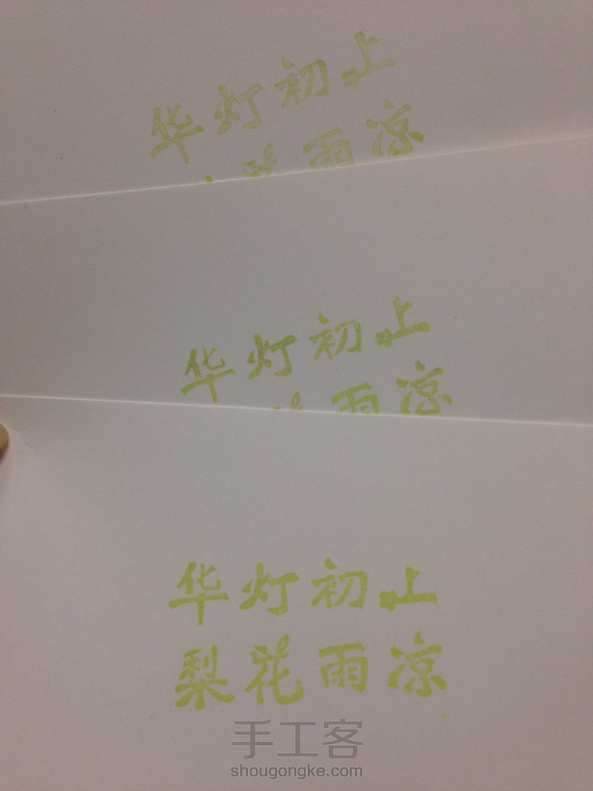 华灯初上
雨凉
华灯初上
雨凉
华灯初上
梨花雨凉
手工客
shougongke.com